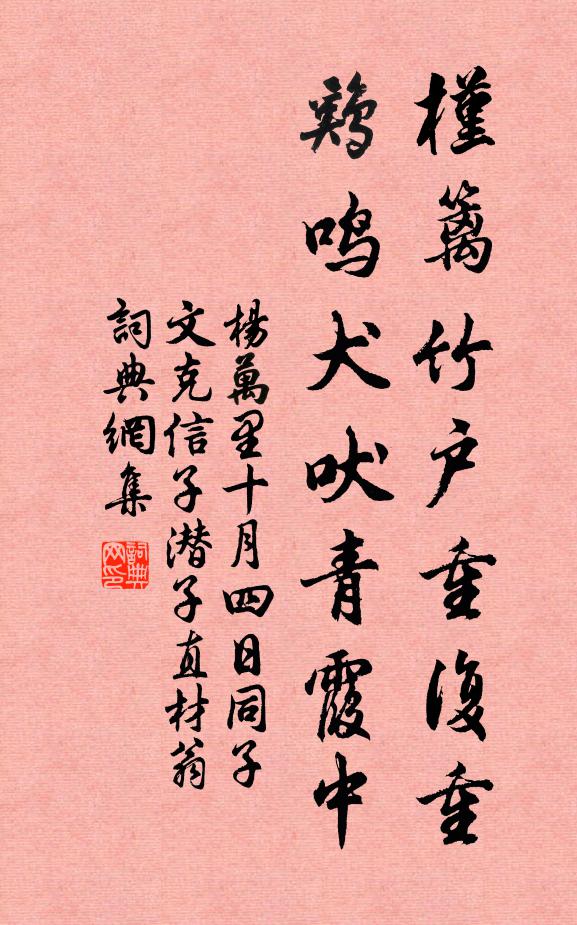 槿篱竹户重復重
鷄鳴犬吠青霞中
楊萬里十月四日同子
文克信子潜子直材翁
詞典網集
詞典網印